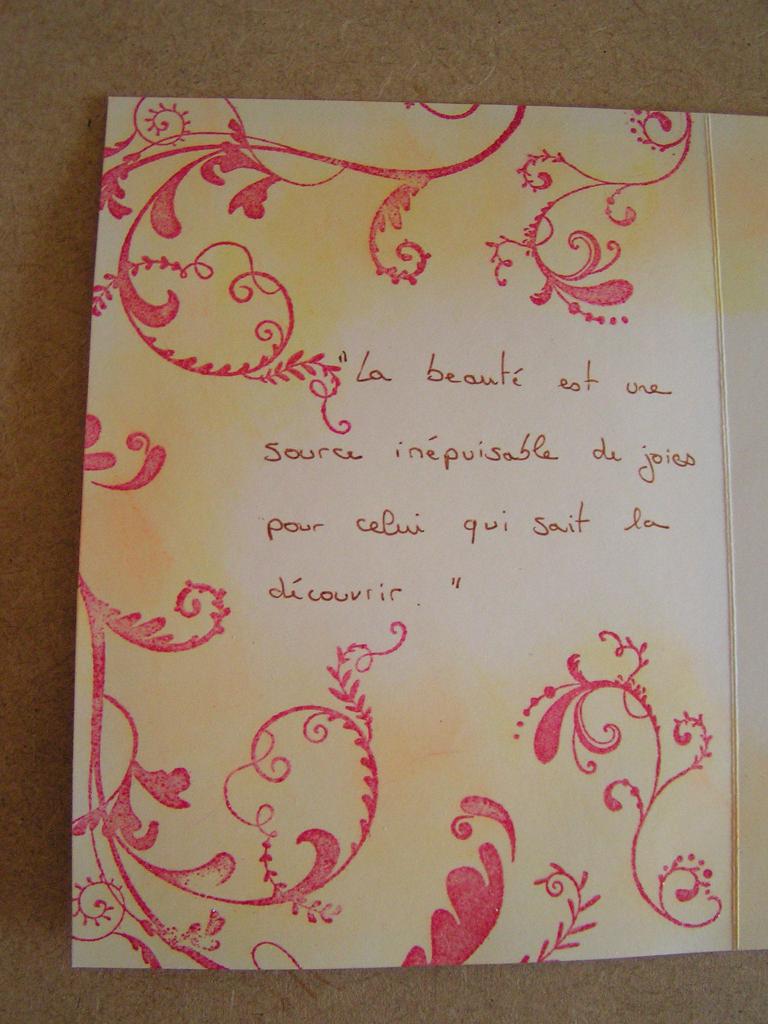 "La beauté est une
source inépuisable de joies
pour celui qui sait la
découvrir. "